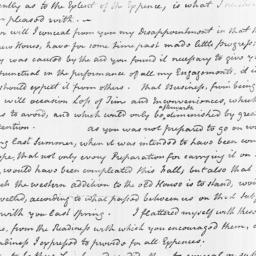 ently as to the Extent of the Expence, is what I
pleased with. —
will I conceal from you my Disappointment in that th
New House, have for some time past made little progress:
was caused by the aid you found it necessary to give y
punctual in the performance of all my Engagements, I
should expect it from others. That Business, from being
will occasion Loss of Time and Inconveniences, which
to avoid, and which could only be diminished by grea
afterwards
tention. as you was not prepared to go on w
ing last Summer, when it was intended to have been con
ope, that not only every Preparation for carrying it on
would have been compleated this Fall; but also that
ch the western addition to the old House is to stand, woul
veled, according to what passed between us on that Subj
with you last Spring. I flattered myself with these
s, from the Readiness with which you encouraged them, a
adiness I expressed to provide for all Expences.